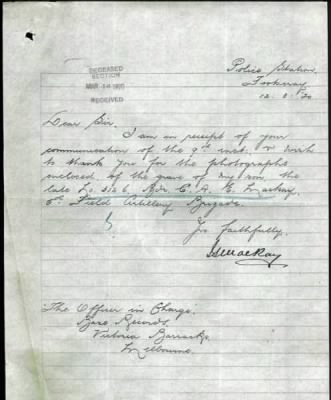 DECEASED
SECTION
MAR 1920
RECEIVED
Police Station,
Footscray,
12. 3. 20
Dear Sir,
I am in receipt of your
communication of the 9th inst. & wish
to thank you for the photographs
enclosed of the grave of my son the
late No. 3126 Gdr. C. A. E. Mackay,
6th Field Artillery Brigade.
Yrs faithfully.
MacKay
The Officer in Charge.
Base Records.
Victoria Barracks.
Melbourne.